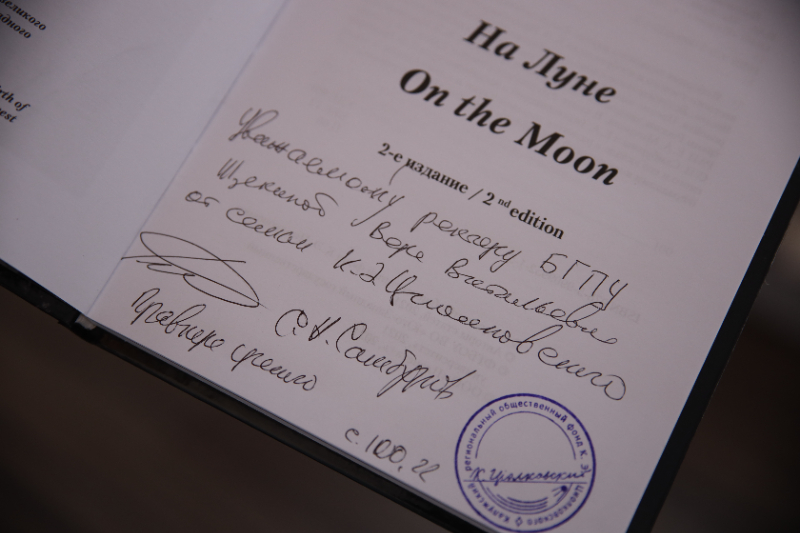 великого
rth of
На Луне
On the Moon
2-е издание / 2nd edition
Уважаемому ректору БГПУ
Щекиной Вере Витальевне
от семьи К.Э. Циолковского
С.Н. Самбуров
Правнук ученого
Калужский региональный общественный фонд К. Э. Циолковского
К. Циолковский